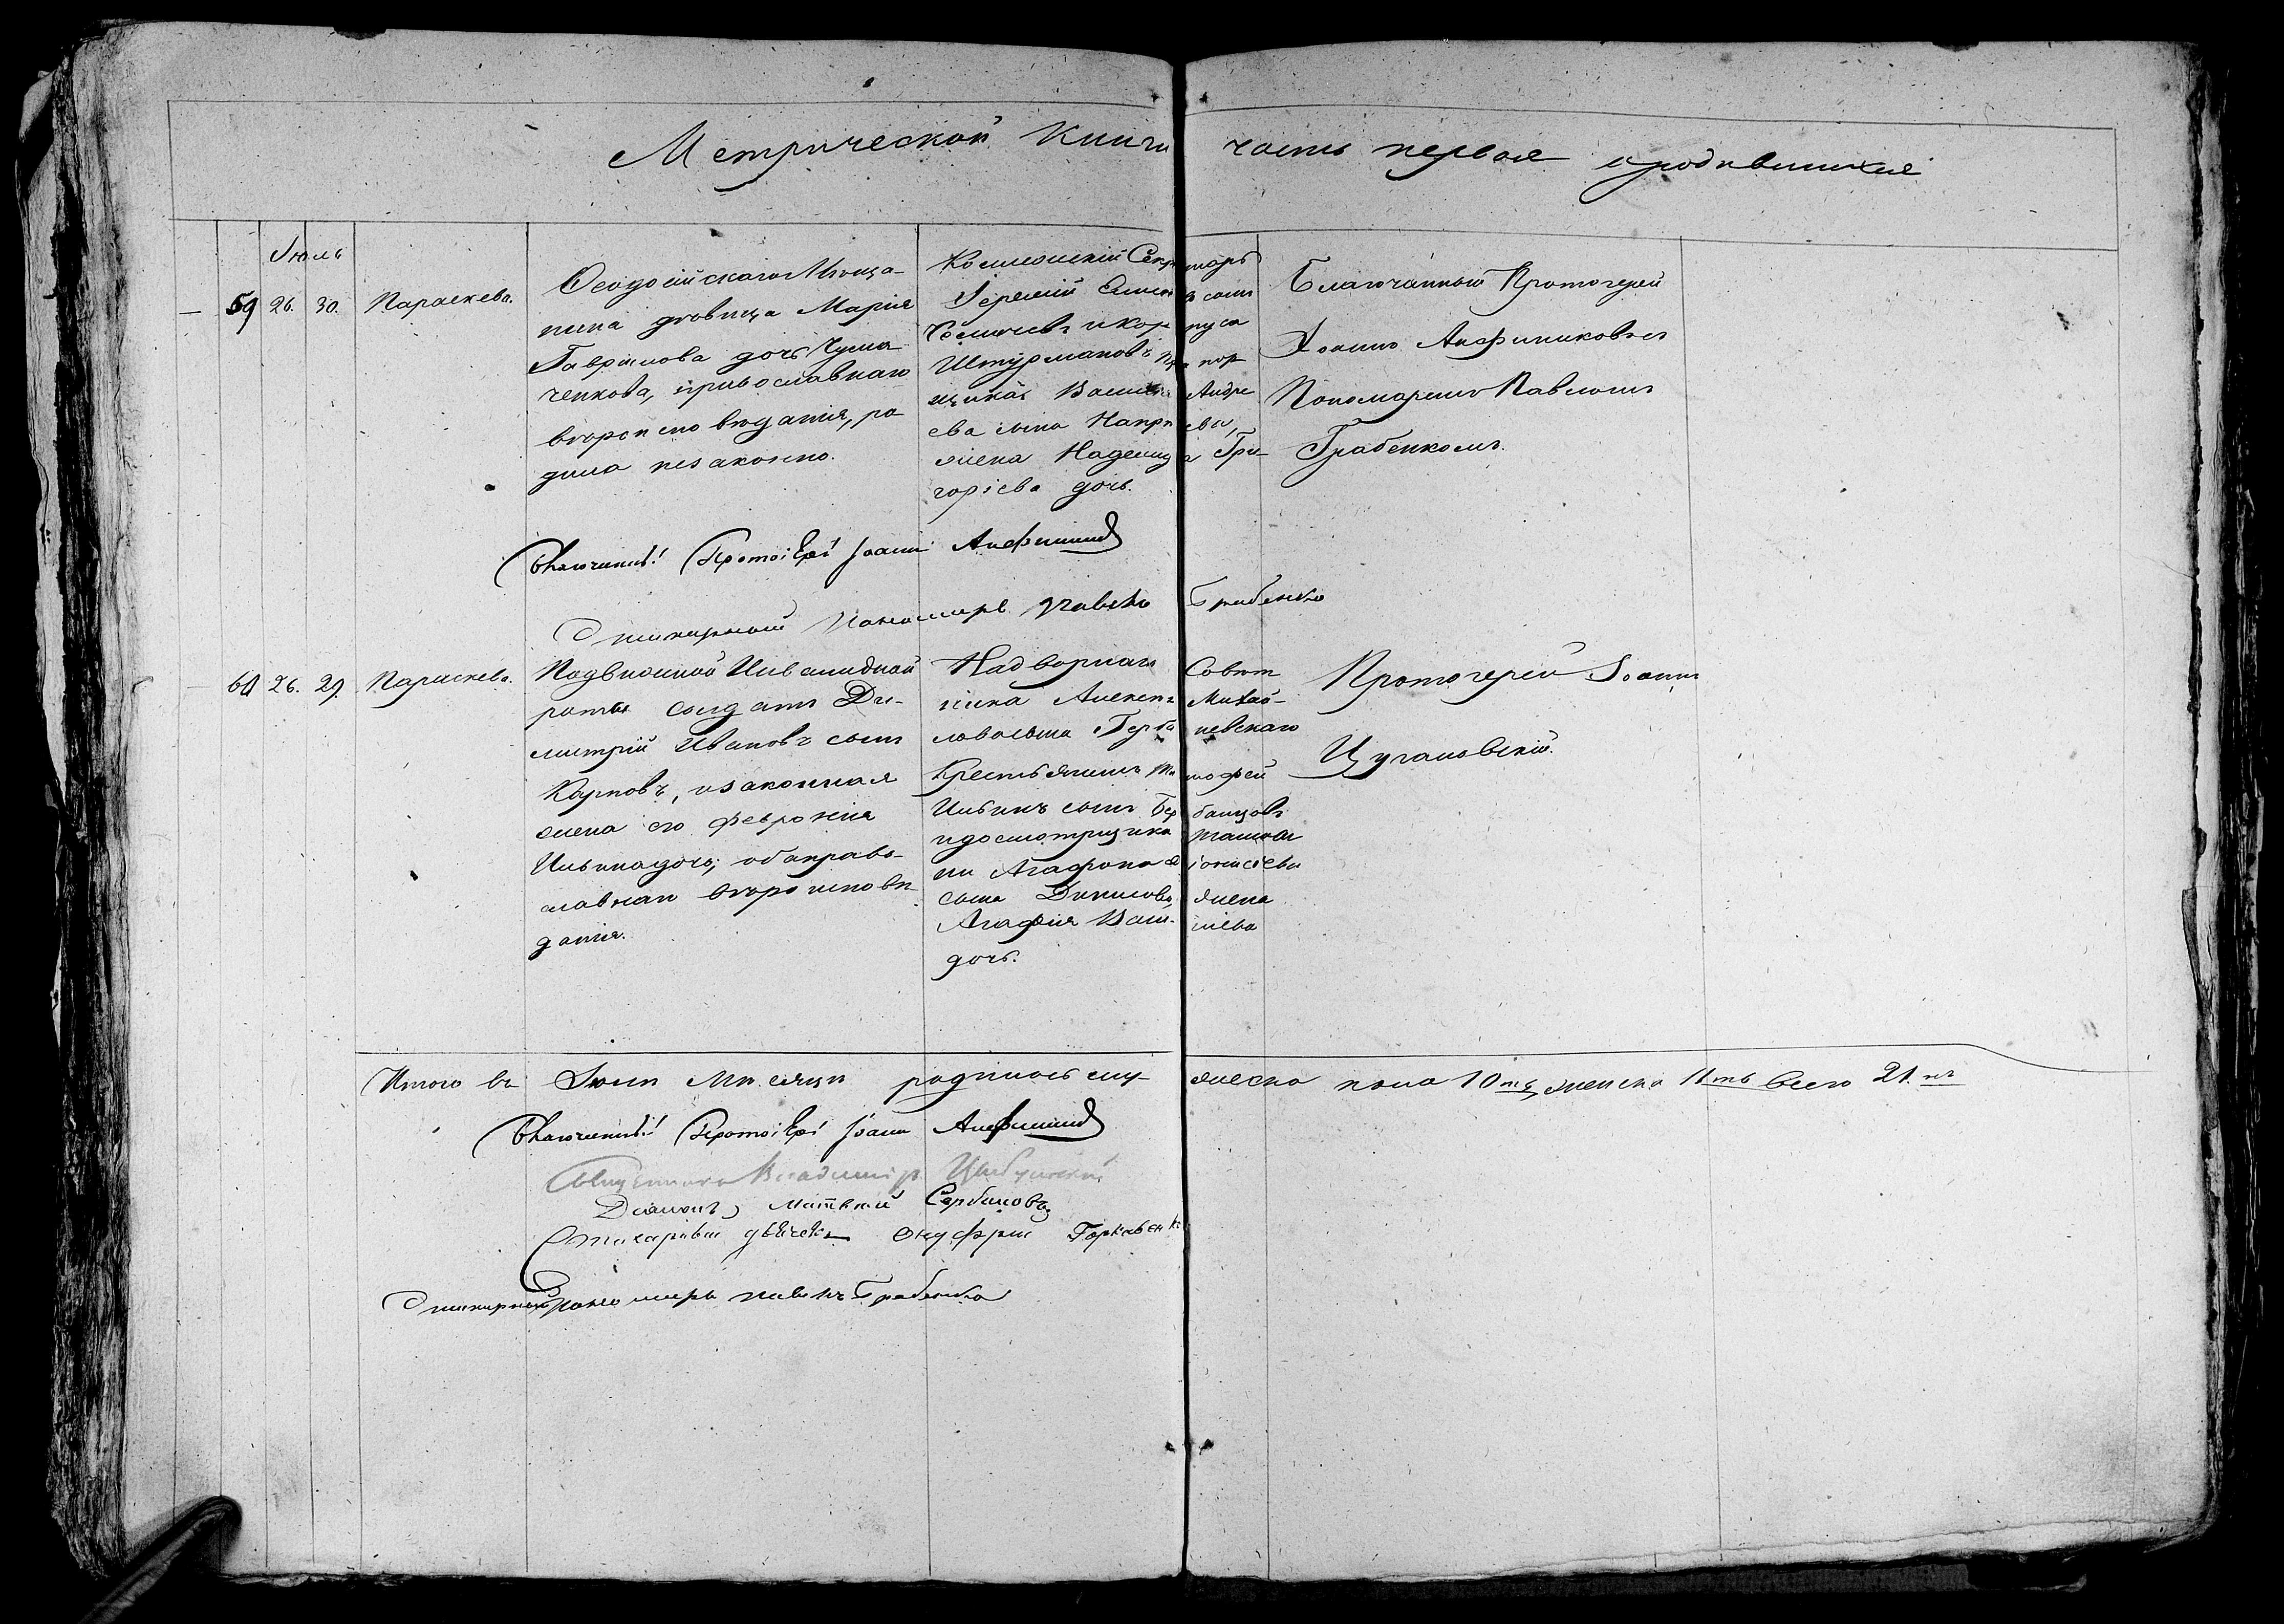 Метрической Книги часть первая о родившихся
Іюль
59 26. 30. Параскева.
Феодосійскаго Мѣща-
нина вдовица Марія
Гаврилова дочь Чума-
ченкова, православнаго
вѣроисповѣданія, ро
дила незаконно.
Коллежскій Секретарь
Іеремій сынъ
и Корпуса
Штурмановъ прапор
щика Василія Андре
ева сына
жена Надежда Гри-
горіева дочь.
Благочинный Протоіерей
Іоаннъ
Пономаремъ Павломъ
Грабенкомъ.
Благочинный Протоіерей Іоаннъ
Пономарь Павелъ Грабенко
60 26. 29. Параскева.
Подвижной Инвалидной
роты солдатъ Ди-
митрій Ивановъ сынъ
Карповъ, и законная
жена его Февронія
Ильина дочь; оба право-
славнаго вѣроисповѣ
данія.
Надворнаго Совѣт
ника Алексѣя Михай-
лова сына
Крестьянинъ Тимофей
Ильинъ сынъ
и досмотрщика Тамож
ни Агафона
сына Денисова жена
Агафія Васи- ліева
дочь.
Протоіерей Іоаннъ
Цугановскій.
Итого въ Іюлѣ Мѣсяцѣ родилось му- жеска пола 10ть, женска 11ть всего 21.нъ
Благочинный Протоіерей Іоаннъ
Священникъ Владиміръ
Діаконъ Матвѣй Сербиновъ
дьячекъ Онуфрій Горкавенк
пономарь Павелъ Грабенко